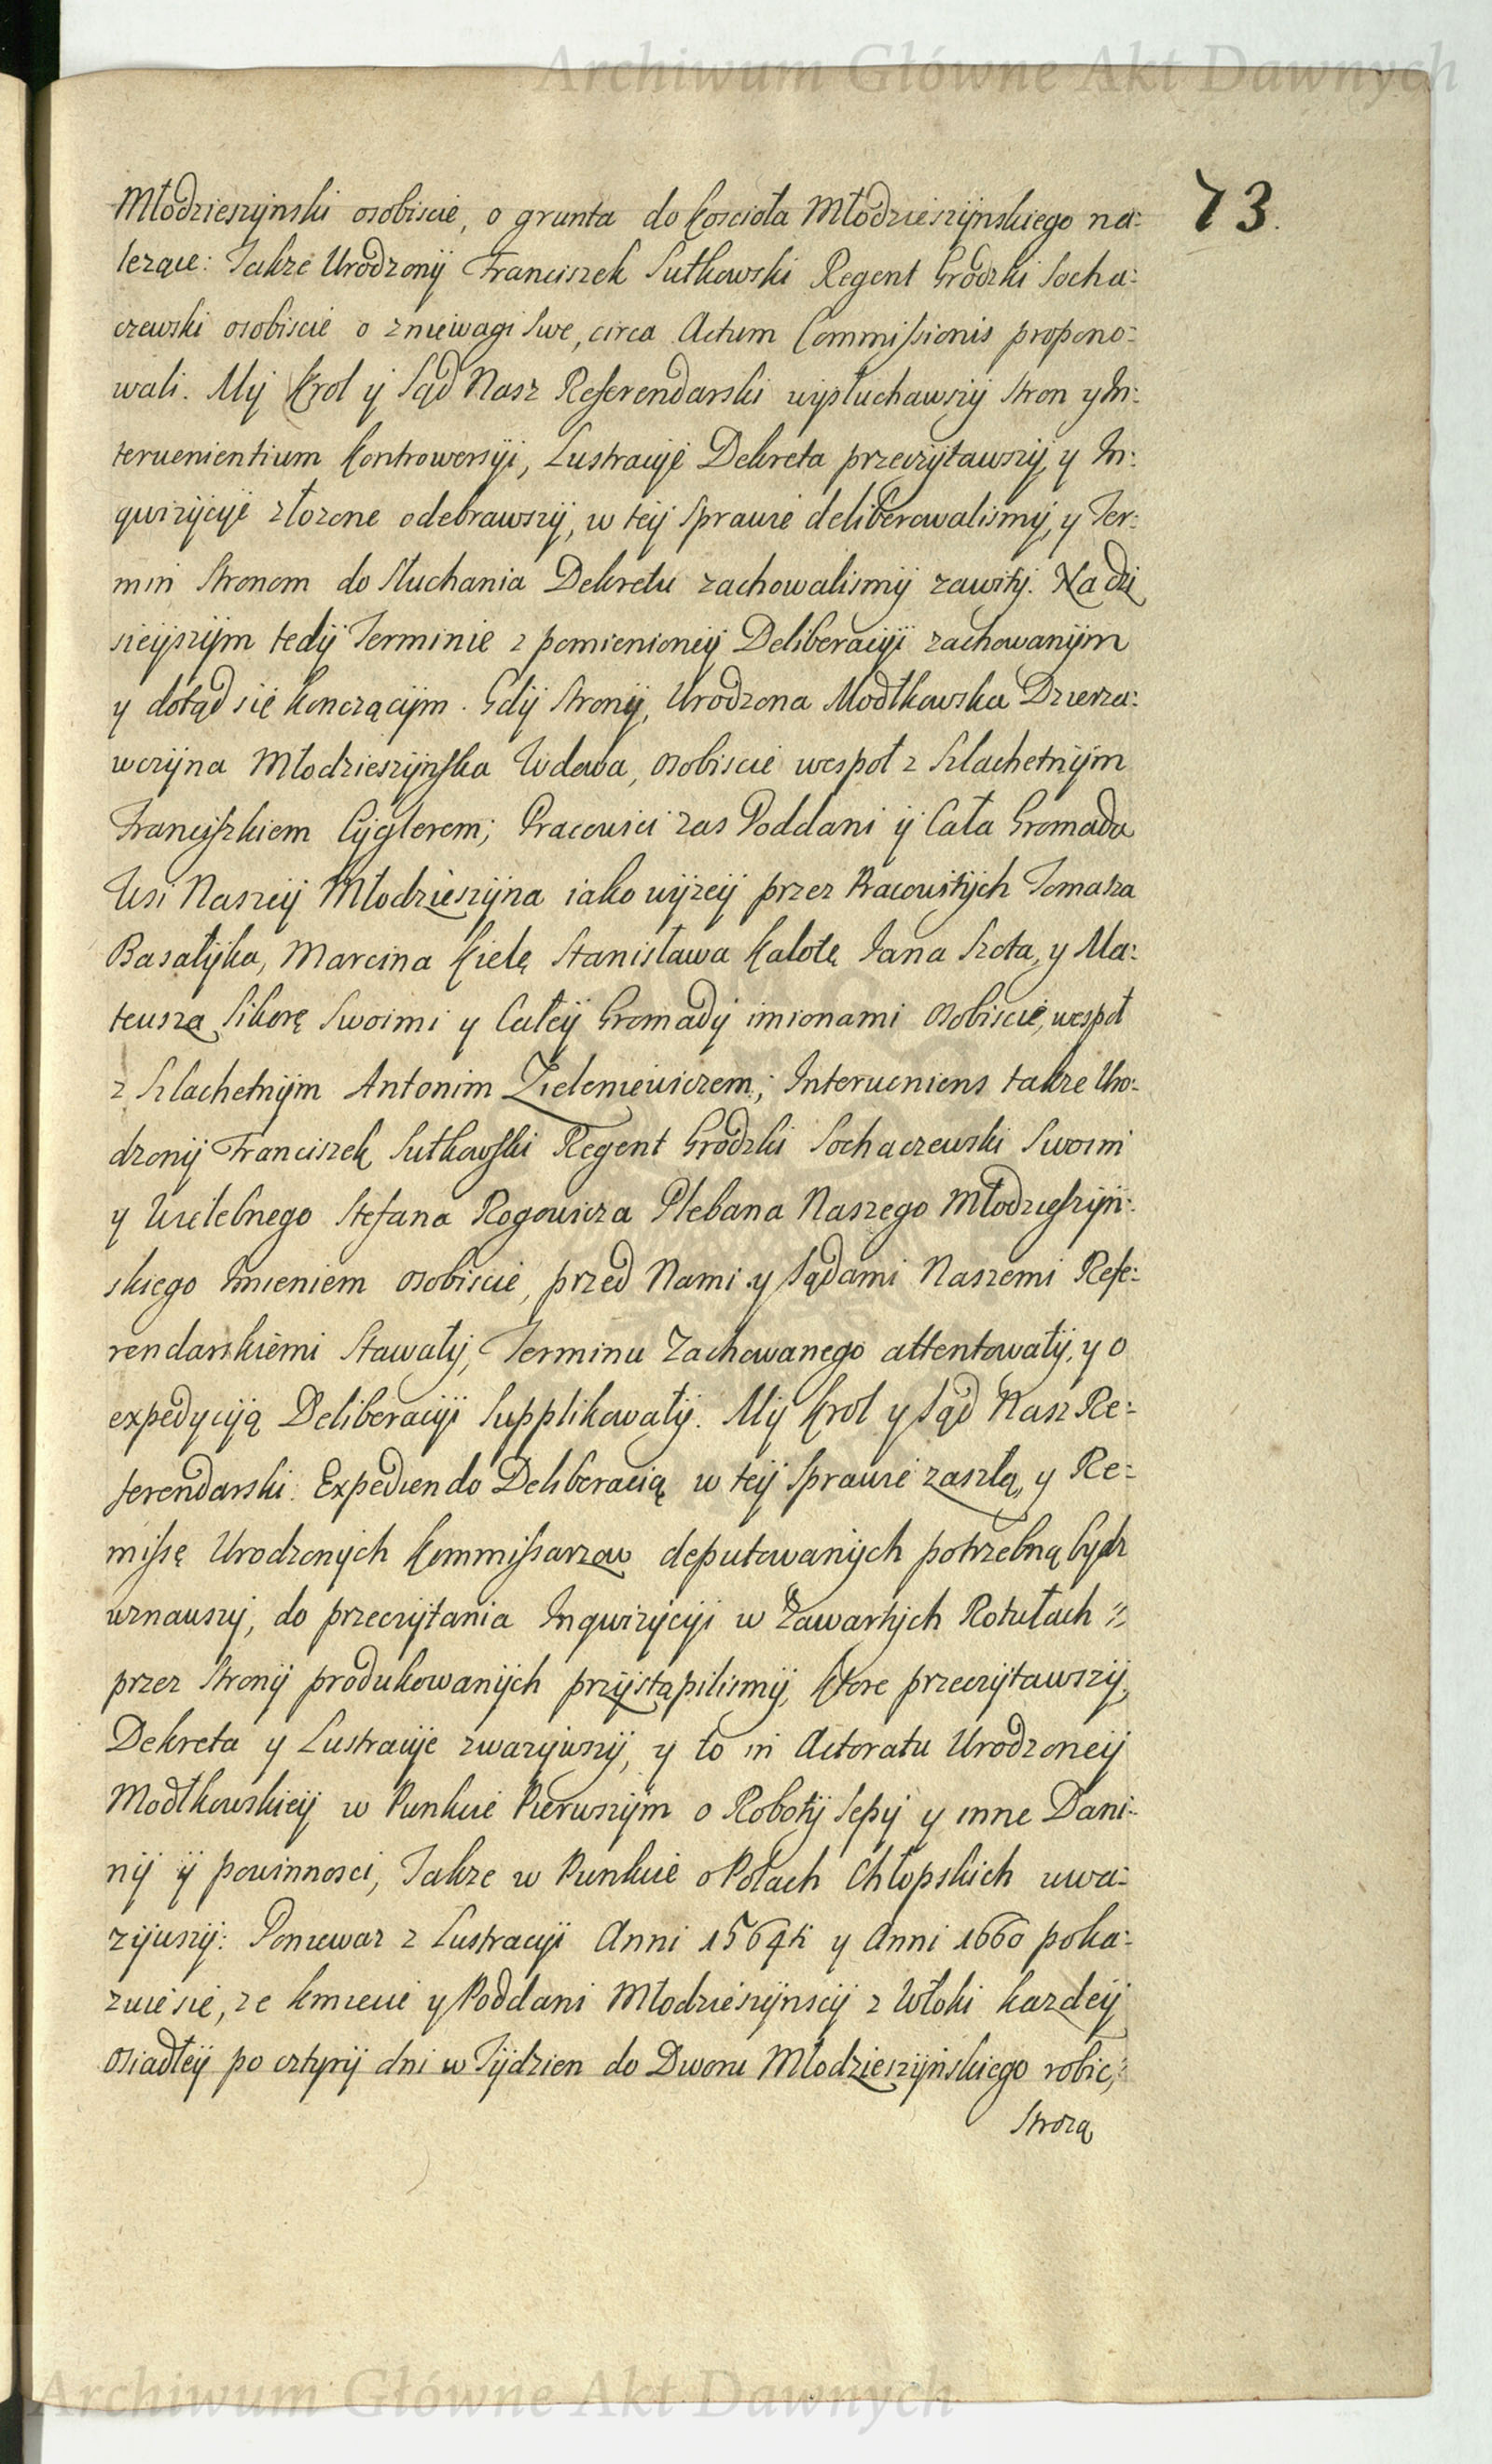 Archiwum Główne Akt Dawnych
73.
Młodzieszÿnski osobiscie, o grunta do koscioła Młodzieszÿnskiego na:
lezące: Takze Urodzonÿ Franciszek Sutkowski Regent Grodzki Socha:
czewski osobiscie o zniewagi Swe, circa Actum Commissionis propono:
wali. Mÿ Krol ÿ Sąd Nasz Referendarski wÿsłuchawszÿ Stron y In:
teruenientium kontrowersÿi, Lustracÿe Dekreta przeczÿtawszÿ, y In:
quizÿcÿe złozone odebrawszÿ, w teÿ Sprawie deliberowalismÿ, y Ter:
min Stronom do Słuchania Dekretu zachowalismÿ zawitÿ. Na dzi
sieÿszÿm tedÿ Terminie z pomienioneÿ Deliberacÿi zachowanÿm
y dotąd się konczącÿm. Gdÿ Stronÿ, Urodzona Modłkowska Dzierza:
wczÿna Młodzieszÿnska Wdowa, osobiscie wespoł z Szlachetnÿm
Franciszkiem Cÿglerem; Pracowici zas Poddani ÿ Cała Gromada
Wsi Naszeÿ Młodzieszÿna iako wÿzeÿ przez Pracowitÿch Tomasza
Basałÿka, Marcina Kielę Stanisława Kalotę Jana Szota, y Ma:
teusza Sikorę Swoimi y Całeÿ Gromadÿ imionami Osobiscie, wespoł
z Szlachetnÿm Antonim Zieleniewiczem; Interueniens takze Uro:
dzonÿ Franciszek Sutkowski Regent Grodzki Sochaczewski Swoim
y Wielebnego Stefana Rogowicza Plebana Naszego Młodzieszÿn:
skiego Imieniem osobiscie, przed Nami y Sądami Naszemi Refe:
rendarskiemi Stawałÿ, Terminu Zachowanego attentowałÿ, y o
expedycÿą Deliberacÿi Supplikowałÿ. Mÿ Krol y Sąd Nasz Re:
ferendarski. Expediendo Deliberacią w teÿ Sprawie zaszłą, y Re:
missę Urodzonych Kommissarzow deputowanÿch potrzebną bydz
uznawszÿ, do przeczÿtania Inquizÿcÿi w Zawartÿch Rotułach
przez Stronÿ produkowanÿch przÿstąpilismÿ, ktore przeczÿtawszÿ,
Dekreta y Lustracÿe zwazÿwszÿ, y to in Actoratu Urodzoneÿ
Modłkowskieÿ w Punkcie Pierwszÿm o Robotÿ Sepÿ y inne Dani:
nÿ ÿ powinnosci, Takze w Punkcie o Polach Chłopskich uwa:
zÿwszÿ: Poniewaz z Lustracÿi Anni 1564ti y Anni 1660 poka:
zuie sie, ze kmiecie y Poddani Młodzieszÿnscÿ z Włoki kazdeÿ
osiadłeÿ po cztyrÿ dni w Tÿdzien do Dworu Młodzieszÿnskiego robic,
Strozą
Archiwum Główne Akt Dawnych